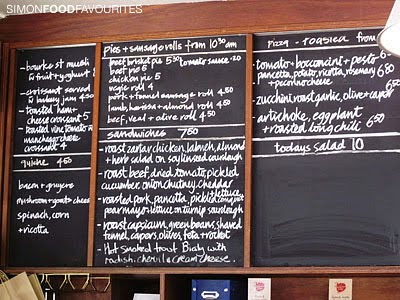 SIMONFOODFAVOURITES
- bourke st muesli
& fruit + yoghurt 8
- croissant served
w butter jam 4 50
- toasted ham +
cheese croissant 5
- toasted vine tomato +
manchego cheese
croissant 4
quiche 4 50
bacon + gruyere
mushroom + goats cheese
spinach, corn
+ ricotta
pies + sausage rolls from 10 30 am
beef brisket pie 5 50
tomato sauce .20
beef pie 5
chicken pie 5
veggie roll 4
pork + fennel sausage roll 4 50
lamb, harissa + almond roll 4 50
beef, veal + olive roll 4 50
sandwiches 7 50
- roast zaatar chicken, labneh, almond
+ herb salad on soy linseed sourdough
- roast beef, dried tomato, pickled
cucumber, onion chutney, cheddar
+ lettuce
- roasted pork, pancetta, pickled
pear mayo + lettuce on turnip sourdough
- roast capsicum, green beans, shaved
fennel, capers, olives, feta + rocket
- Hot smoked trout Bialy with
radish, chervil & cream cheese
pizza - toasted from
- tomato + bocconcini + pesto 6
- pancetta, potato, ricotta, rosemary 6 80
+ pecorino cheese
- zucchini, roast garlic, olive + caper 6 50
- artichoke, eggplant
+ roasted long chilli 6 50
todays salad 10